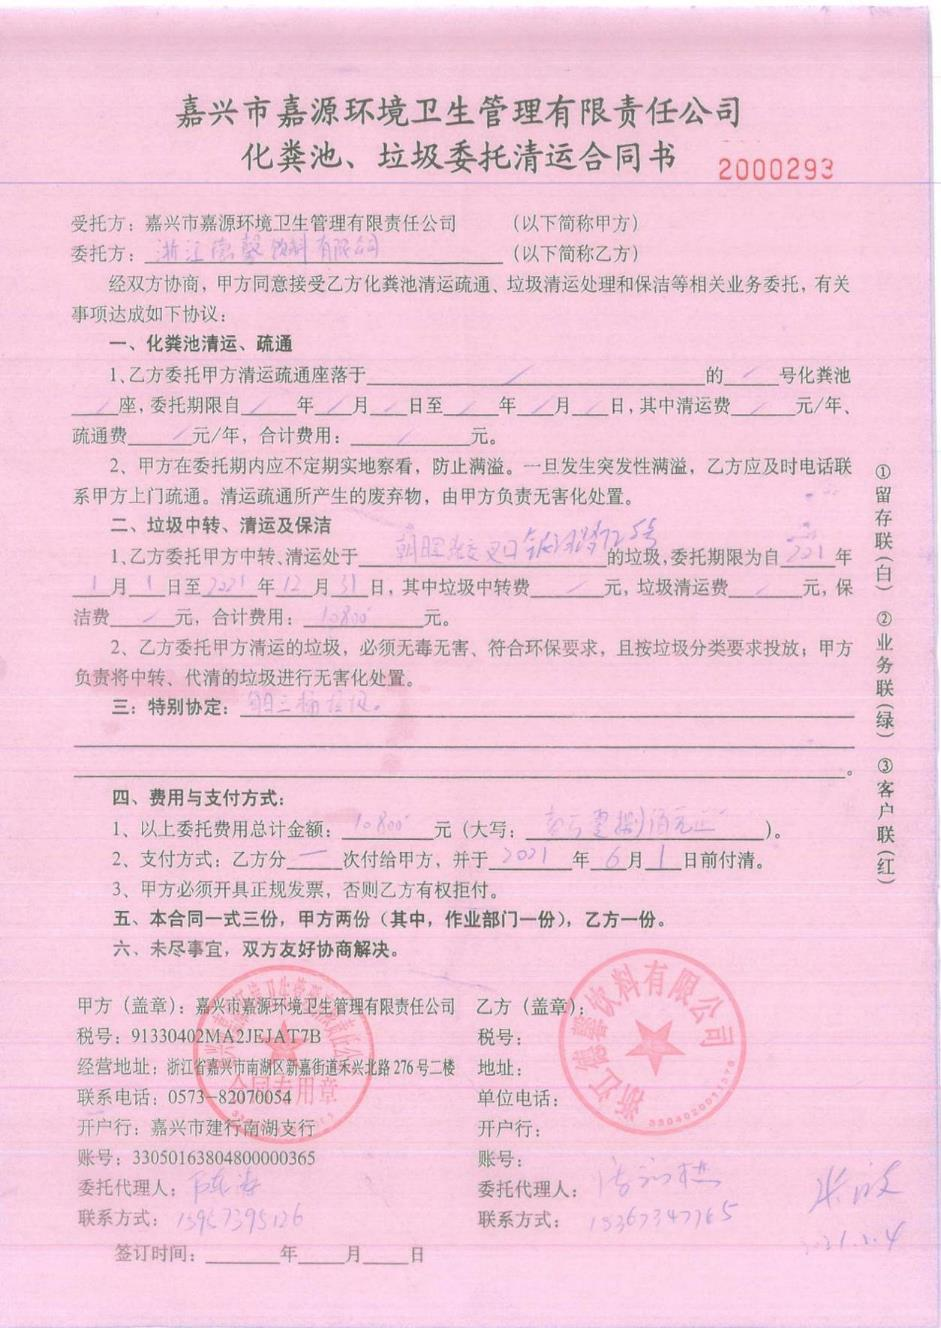 嘉兴市嘉源环境卫生管理有限责任公司
化粪池、垃圾委托清运合同书 2000293
受托方：嘉兴市嘉源环境卫生管理有限责任公司 （以下简称甲方）
委托方：浙江德馨饮料有限公司 （以下简称乙方）
经双方协商，甲方同意接受乙方化粪池清运疏通、垃圾清运处理和保洁等相关业务委托，有关
事项达成如下协议：
一、化粪池清运、疏通
1、乙方委托甲方清运疏通座落于 / 的 / 号化粪池
/ 座，委托期限自 / 年 / 月 / 日至 / 年 / 月 / 日，其中清运费 / 元/年、
疏通费 / 元/年，合计费用： / 元。
2、甲方在委托期内应不定期实地察看，防止满溢。一旦发生突发性满溢，乙方应及时电话联
系甲方上门疏通。清运疏通所产生的废弃物，由甲方负责无害化处置。
二、垃圾中转、清运及保洁
1、乙方委托甲方中转、清运处于 的垃圾，委托期限为自 2021 年
1 月 1 日至 2021 年 12 月 31 日，其中垃圾中转费 / 元，垃圾清运费 / 元，保
洁费 / 元，合计费用： 10800 元。
2、乙方委托甲方清运的垃圾，必须无毒无害、符合环保要求，且按垃圾分类要求投放；甲方
负责将中转、代清的垃圾进行无害化处置。
三：特别协定：每日三桶垃圾。
四、费用与支付方式：
1、以上委托费用总计金额： 10800 元（大写： 捌佰元正 ）。
2、支付方式：乙方分 一 次付给甲方，并于 2021 年 6 月 1 日前付清。
3、甲方必须开具正规发票，否则乙方有权拒付。
五、本合同一式三份，甲方两份（其中，作业部门一份），乙方一份。
六、未尽事宜，双方友好协商解决。
①留存联（白） ②业务联（绿） ③客户联（红）
甲方（盖章）：嘉兴市嘉源环境卫生管理有限责任公司 乙方（盖章）：
税号：91330402MA2JEJAT7B 税号：
经营地址：浙江省嘉兴市南湖区新嘉街道禾兴北路276号二楼 地址：
联系电话：0573-82070054 单位电话：
开户行：嘉兴市建行南湖支行 开户行：
账号：33050163804800000365 账号：
委托代理人： 委托代理人：
联系方式：15967395126 联系方式：15367347765
签订时间： 年 月 日
合同专用章
浙江德馨饮料有限公司